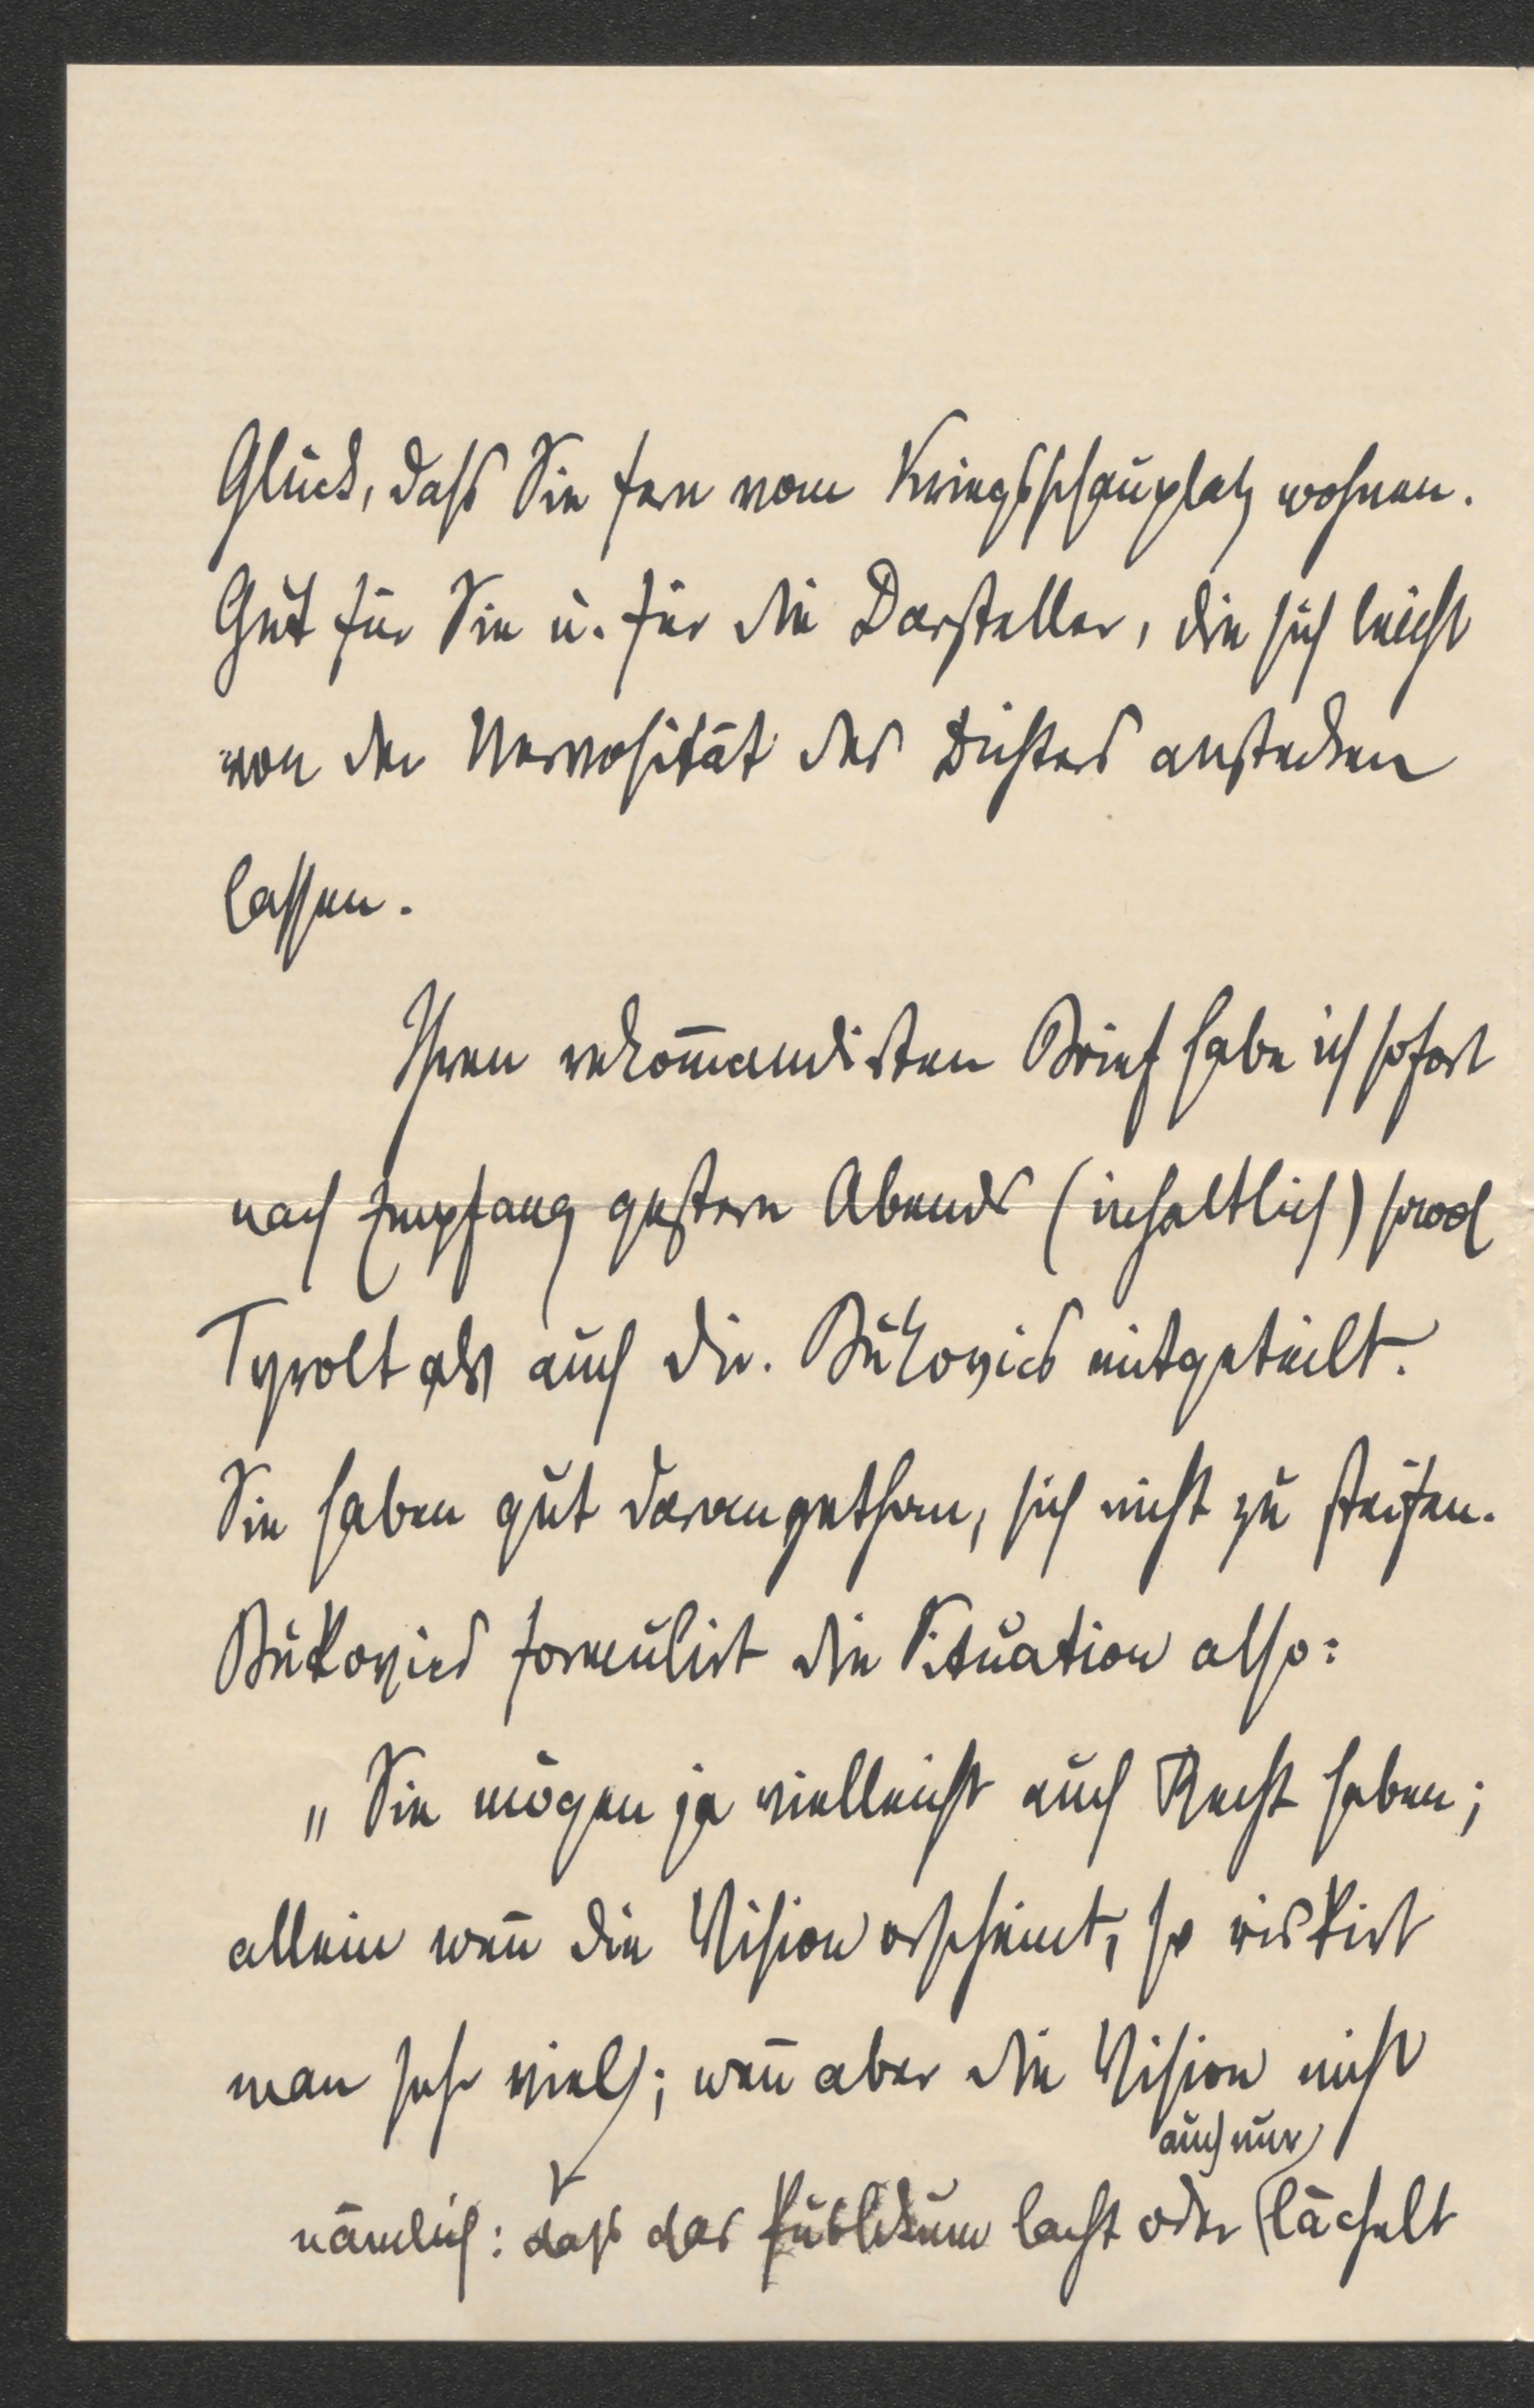 Glück, dass Sie fern vom Kriegsschauplatz wohnen.
Gut für Sie u. für die Darsteller, die sich leicht
von der Nervosität des Dichters anstecken
lassen.
Ihren rekom̄andirten Brief habe ich sofort
nach Empfang gestern Abends (inhaltlich) sowol
Tyrolt als auch Dir. Bukovics mitgeteilt.
Sie haben gut daran gethan, sich nicht zu steifen.
Bukovics formulirt die Situation also:
„Sie mögen ja vielleicht auch Recht haben;
allein wen̄ die Vision erscheint, so riskirt
man sehr viel; wen̄ aber die Vision nicht
auch nur
nämlich: daß das Publikum lacht oder lächelt